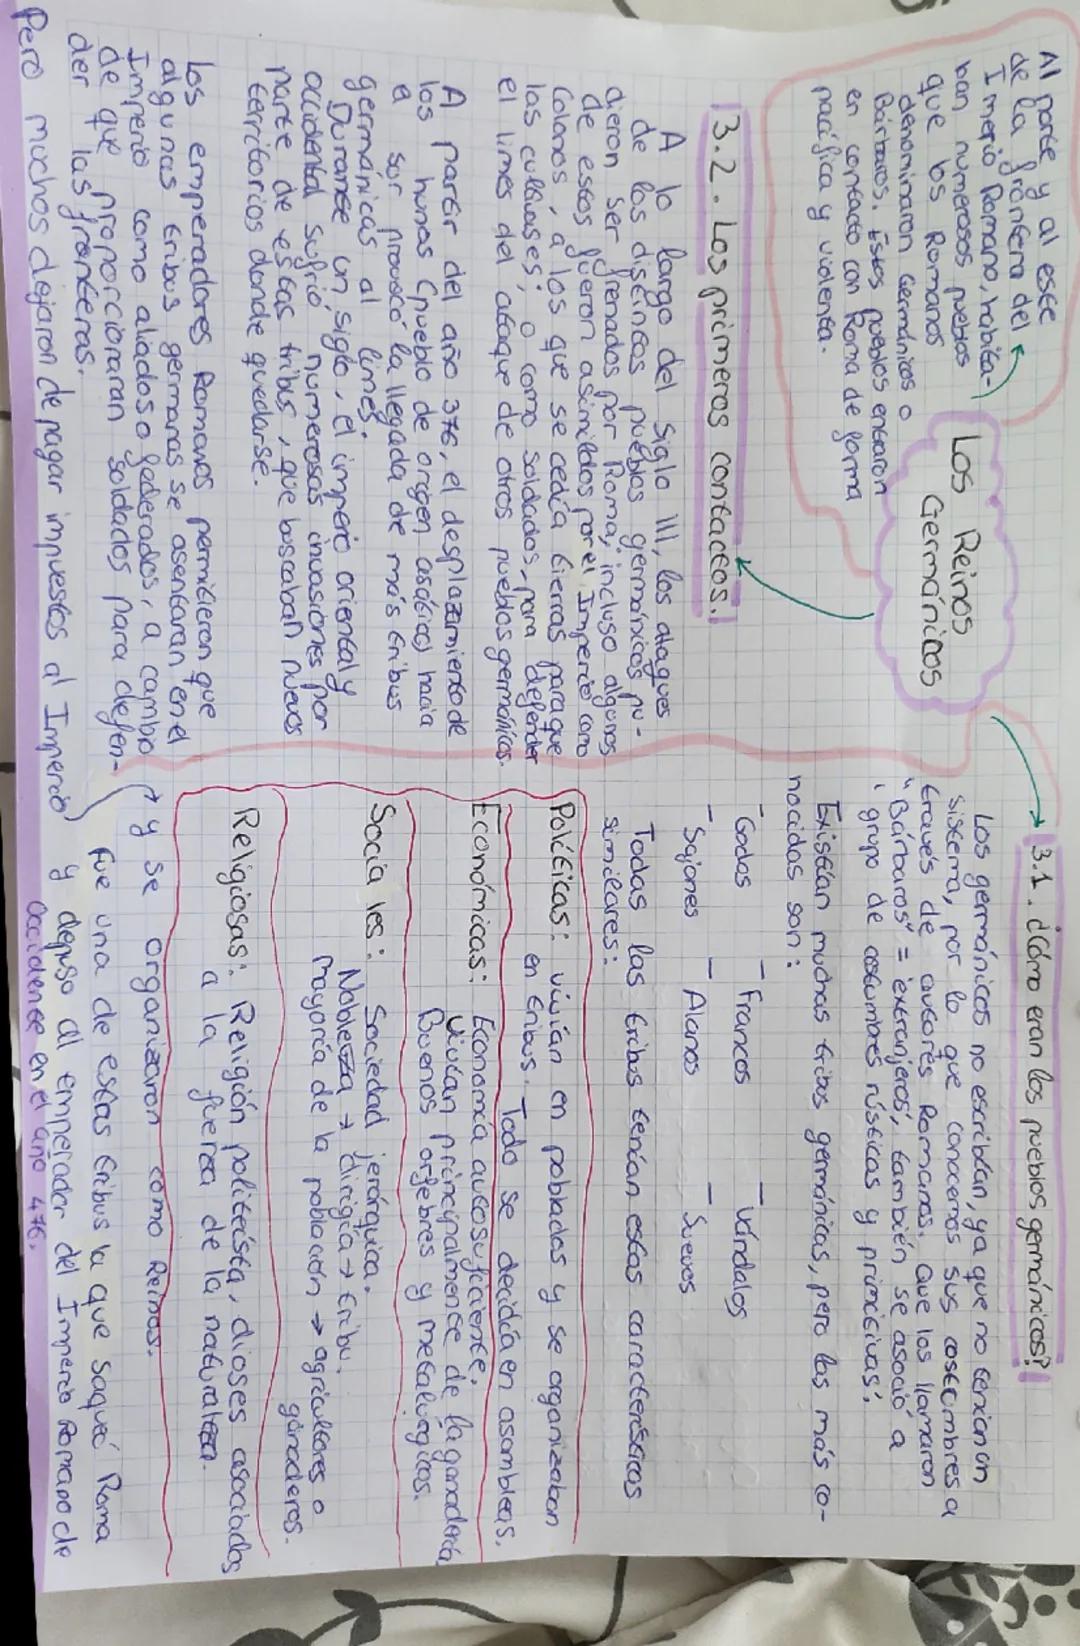 Los Reinos
Germánicos
Al norte y al este
de la frontera del
Imperio Romano, habita-
ban numerosos pueblos
que los Romanos
denominaron Germánicos o
Bárbaros. Estos pueblos entraron
en contacto con Roma de forma
pacífica y violenta.
3.1. ¿Cómo eran los pueblos germánicos?
Los germánicos no escribían, ya que no tenían un
sistema, por lo que conocemos sus costumbres a
través de autores Romanos. Que los llamaron
"Bárbaros" = extranjeros, también se asoció a
grupo de costumbres rústicas y primitivas.
Existían muchas tribus germánicas, pero las más co-
nocidas son:
- Godos - Francos - Vándalos
- Sajones - Alanos - Suevos
Todas las tribus tenían estas características
similares:
Políticas: vivían en poblados y se organizaban
en tribus. Todo se decidía en asambleas.
Económicas: Economía autosuficiente.
Vivían principalmente de la ganadería
Buenos orfebres y metalurgicos.
Sociales: Sociedad jerárquica.
Nobleza → dirigía → tribu.
Mayoría de la población → agricultores o
ganaderos.
Religiosas: Religión politeísta, dioses asociados
a la fuerza de la naturaleza.
3.2. Los primeros contactos.
A lo largo del siglo III, los ataques
de los distintos pueblos germánicos pu-
dieron ser frenados por Roma; incluso algunos
de estos fueron asimilados por el Imperio como
colonos, a los que se cedía tierras para que
las cultivases; o como soldados, para defender
el limes del ataque de otros pueblos germánicos.
A partir del año 376, el desplazamiento de
los hunos (pueblo de origen asiático) hacia
a sur provocó la llegada de más tribus
germánicas al limes.
Durante un siglo, el imperio oriental y
occidental sufrió numerosas invasiones por
parte de estas tribus, que buscaban nuevos
territorios donde quedarse.
Los emperadores Romanos permitieron que
algunas tribus germanas se asentaran en el
Imperio como aliados o federados, a cambio
de que proporcionaran soldados para defen-
der las fronteras.
Pero muchos dejaron de pagar impuestos al Imperio
→ y se organizaron como Reinos.
Fue una de estas tribus la que saqueó Roma
y depuso al emperador del Imperio Romano de
Occidente en el año 476.